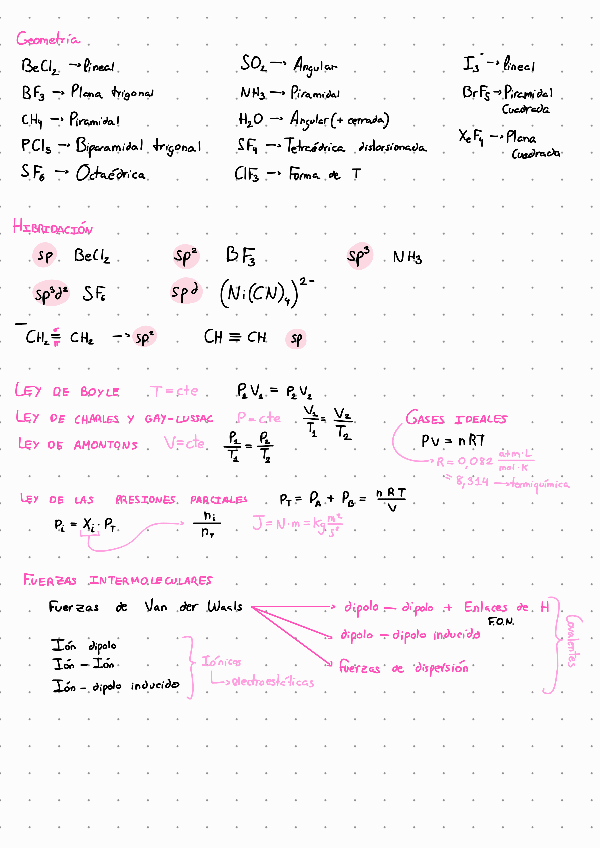 Geometría
BeCl₂ → Lineal
BF₃ → Plana trigonal
CH₄ → Piramidal
PCl₅ → Biparamidal trigonal
SF₆ → Octaédrica
SO₂ → Angular
NH₃ → Piramidal
H₂O → Angular (+ cerrada)
SF₄ → Tetraédrica distorsionada
ClF₃ → Forma de T
I₃⁻ → Lineal
BrF₅ → Piramidal
Cuadrada
XeF₄ → Plana
Cuadrada
HIBRIDACIÓN
sp BeCl₂ sp² BF₃ sp³ NH₃
sp³d² SF₆ spd (Ni(CN)₄)²⁻
CH₂ = CH₂ → sp² CH ≡ CH sp
LEY DE BOYLE T = cte P₁V₁ = P₂V₂
LEY DE CHARLES Y GAY-LUSSAC P = cte V₁/T₁ = V₂/T₂
LEY DE AMONTONS V = cte P₁/T₁ = P₂/T₂
GASES IDEALES
PV = nRT
R = 0,082 atm·L/mol·K
= 8,314 → termiquímica
LEY DE LAS PRESIONES PARCIALES P_T = P_A + P_B = nRT/V
P_i = X_i · P_T → n_i/n_T J = N·m = Kg m²/s²
FUERZAS INTERMOLECULARES
Fuerzas de Van der Waals → dipolo - dipolo + Enlaces de H
F.O.N.
dipolo - dipolo inducido
Fuerzas de dispersión
Covalentes
Ión dipolo
Ión - Ión
Ión - dipolo inducido
Iónicas
electroestáticas